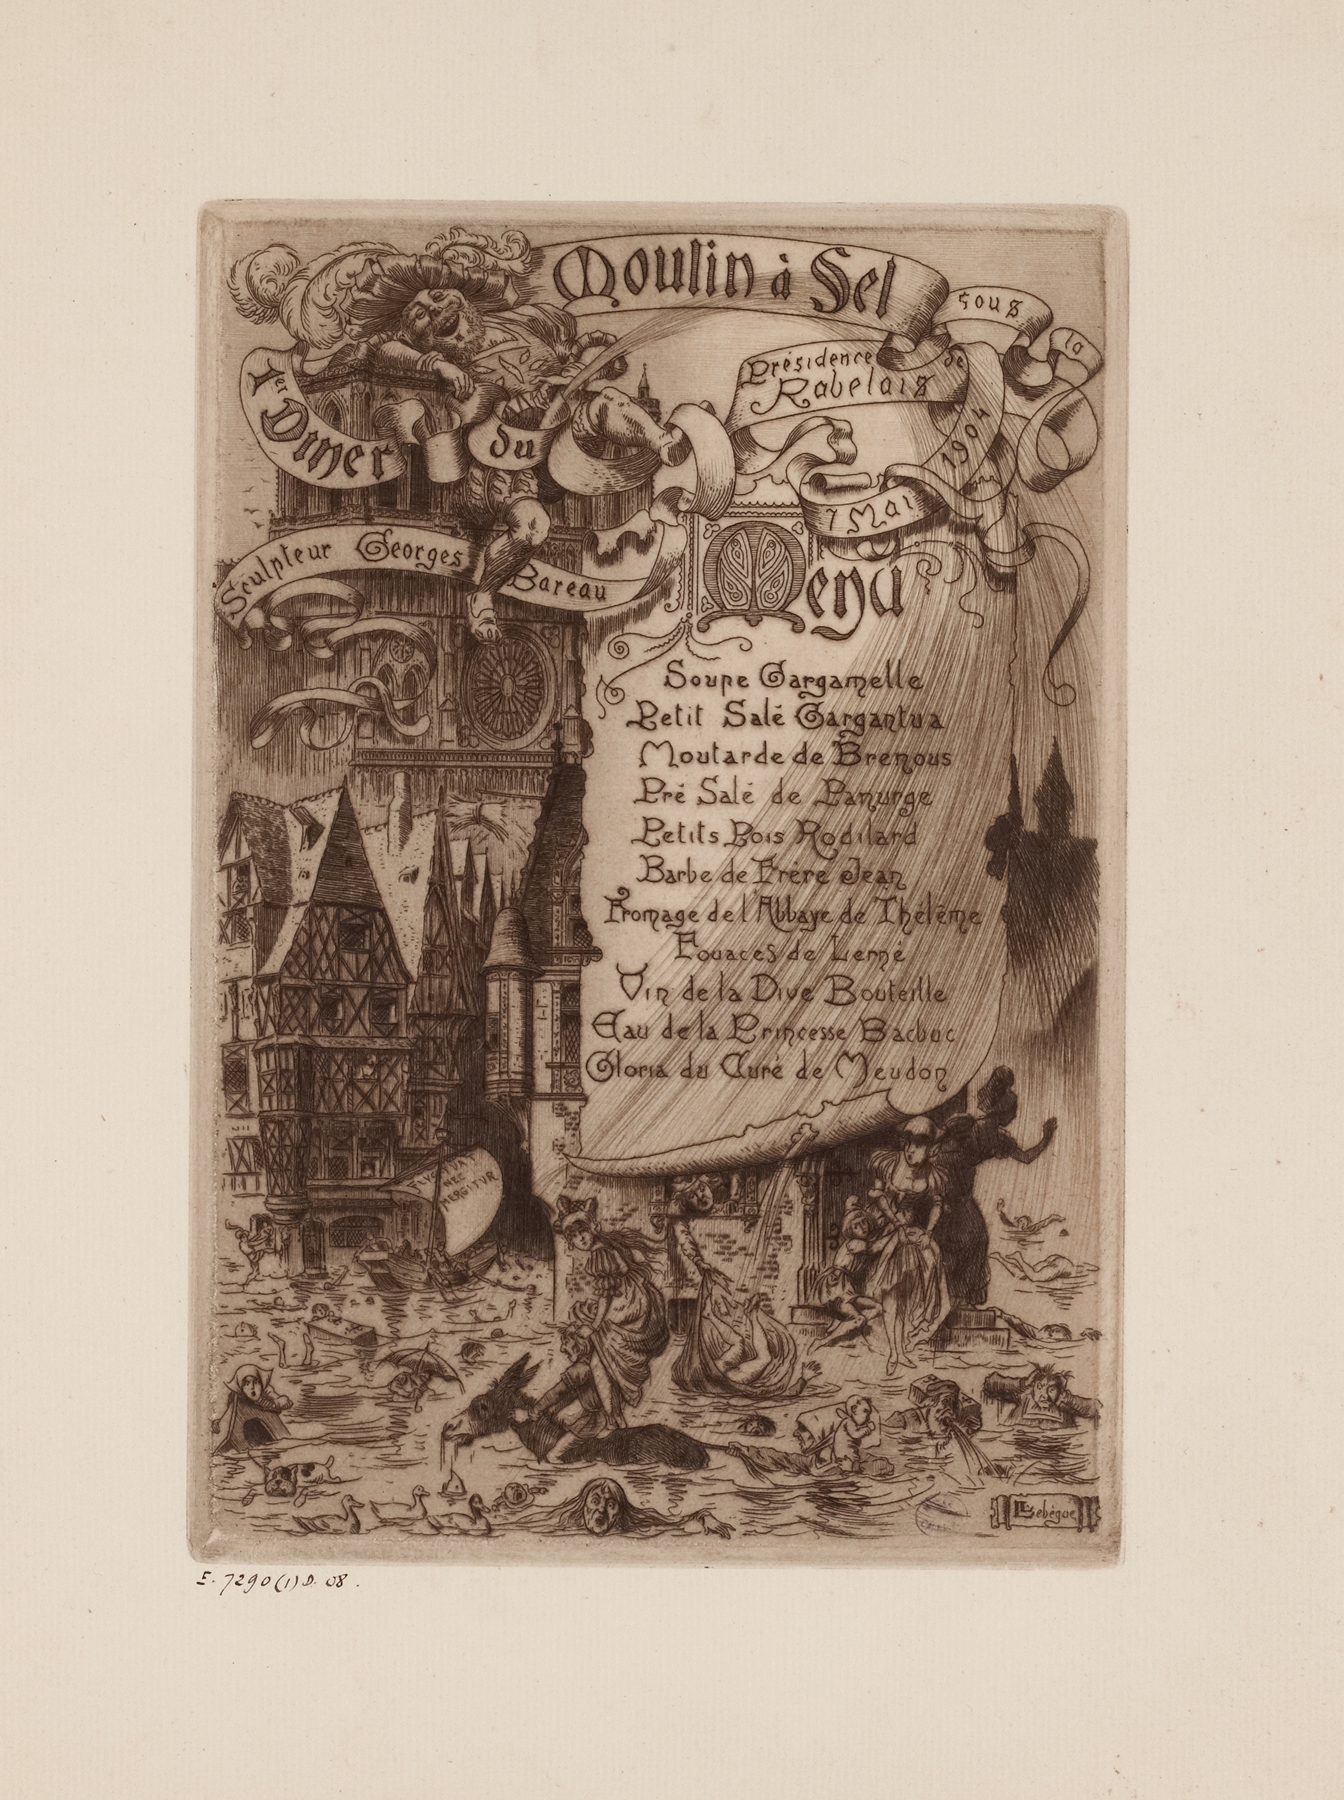 Moulin à Sel
sous
la
Présidence de
Rabelais
1er Diner
du
7 Mai 1904
Sculpteur Georges Bareau
Menu
Soupe Gargamelle
Petit Salé Gargantua
Moutarde de Brenous
Pré Salé de Panurge
Petits Pois Rodilard
Barbe de Frère Jean
Fromage de l'Abbaye de Thélème
Fouaces de Lerné
Vin de la Dive Bouteille
Eau de la Princesse Bacbuc
Gloria du Curé de Meudon
FLVCTVAT
NEC
MERGITVR
L Lebègue
E. 7290 (1) D. 08.